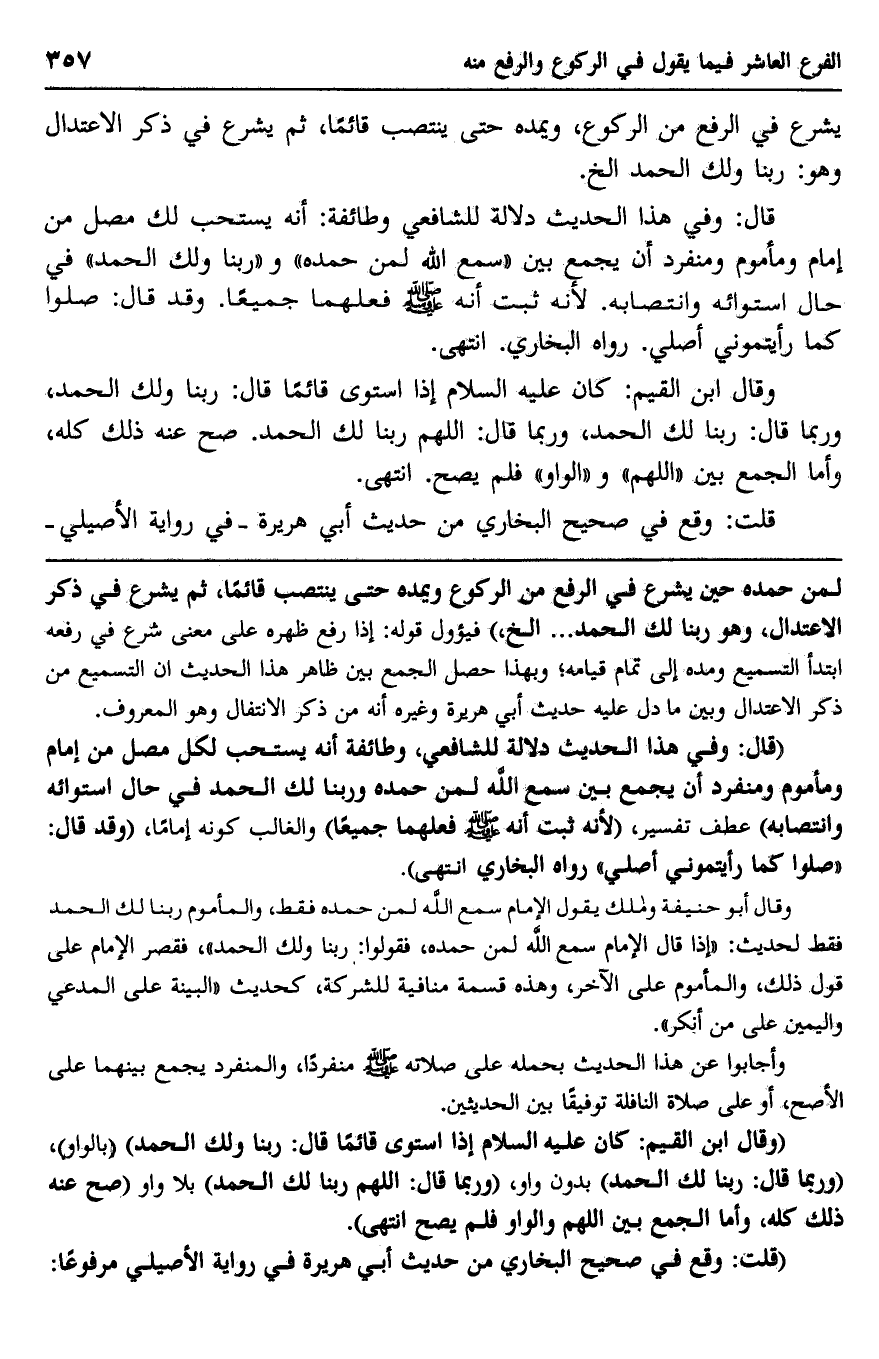 الفرع العاشر فيما يقول في الركوع والرفع منه ٣٥٧
يشرع في الرفع من الركوع، ويمده حتى ينتصب قائمًا، ثم يشرع في ذكر الاعتدال
وهو: ربنا ولك الحمد الخ.
قال: وفي هذا الحديث دلالة للشافعي وطائفة: أنه يستحب لك مصل من
إمام ومأموم ومنفرد أن يجمع بين «سمع الله لمن حمده» و «ربنا ولك الحمد» في
حال استوائه وانتصابه. لأنه ثبت أنه ﷺ فعلهما جميعًا. وقد قال: صلوا
كما رأيتموني أصلي. رواه البخاري. انتهى.
وقال ابن القيم: كان عليه السلام إذا استوى قائمًا قال: ربنا ولك الحمد،
وربما قال: ربنا لك الحمد، وربما قال: اللهم ربنا لك الحمد. صح عنه ذلك كله،
وأما الجمع بين «اللهم» و «الواو» فلم يصح. انتهى.
قلت: وقع في صحيح البخاري من حديث أبي هريرة ـ في رواية الأصيلي ـ
لمن حمده حين يشرع في الرفع من الركوع ويمده حتى ينتصب قائمًا، ثم يشرع في ذكر
الاعتدال، وهو ربنا لك الحمد... الخ،) فيؤول قوله: إذا رفع ظهره على معنى شرع في رفعه
ابتدأ التسميع ومده إلى تمام قيامه؛ وبهذا حصل الجمع بين ظاهر هذا الحديث ان التسميع من
ذكر الاعتدال وبين ما دل عليه حديث أبي هريرة وغيره أنه من ذكر الانتقال وهو المعروف.
(قال: وفي هذا الحديث دلالة للشافعي، وطائفة أنه يستحب لكل مصل من إمام
ومأموم ومنفرد أن يجمع بين سمع اللَّه لمن حمده وربنا لك الحمد في حال استوائه
وانتصابه) عطف تفسير، (لأنه ثبت أنه ﷺ فعلهما جميعًا) والغالب كونه إمامًا، (وقد قال:
«صلوا كما رأيتموني أصلي» رواه البخاري انتهى).
وقال أبو حنيفة ولملك يقول الإمام سمع اللَّه لمن حمده فقط، والمأموم ربنا لك الحمد
فقط لحديث: «إذا قال الإمام سمع اللَّه لمن حمده، فقولوا: ربنا ولك الحمد»، فقصر الإمام على
قول ذلك، والمأموم على الآخر، وهذه قسمة منافية للشركة، كحديث «البينة على المدعي
واليمين على من أنكر».
وأجابوا عن هذا الحديث بحمله على صلاته ﷺ منفردًا، والمنفرد يجمع بينهما على
الأصح، أو على صلاة النافلة توفيقًا بين الحديثين.
(وقال ابن القيم: كان عليه السلام إذا استوى قائمًا قال: ربنا ولك الحمد) (بالواو)،
(وربما قال: ربنا لك الحمد) بدون واو، (وربما قال: اللهم ربنا لك الحمد) بلا واو (صح عنه
ذلك كله، وأما الجمع بين اللهم والواو فلم يصح انتهى).
(قلت: وقع في صحيح البخاري من حديث أبي هريرة في رواية الأصيلي مرفوعًا: